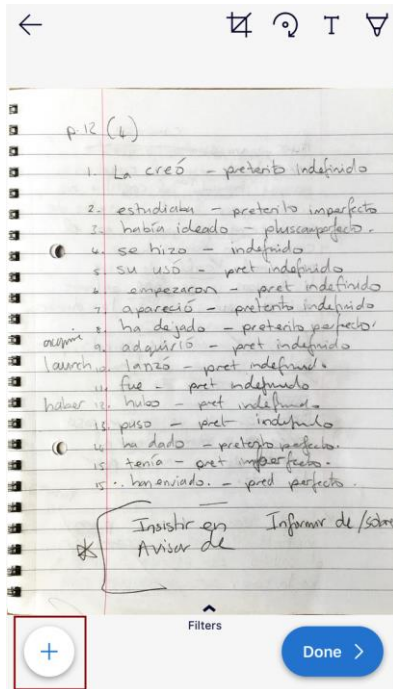 T
p. 12 (4)
1. La creó – preterito indefinido
2. estudiaba – preterito imperfecto
3. había ideado – pluscuamperfecto.
4. se hizo – indefinido
5. su usó – pret indefinido
6. empezaron – pret indefinido
7. apareció – preterito indefinido
8. ha dejado – preterito perfecto.
9. adquirió – pret indefinido
launch 10. lanzó – pret indefinido
11. fue – pret indefinido
haber 12. hubo – pret indefinido
13. puso – pret indefinido
14. ha dado – preterito perfecto.
15 tenía – pret imperfecto.
15. han enviado. – pred perfecto.
Insistir en Informar de/sobre
Avisar de
Filters
+
Done >